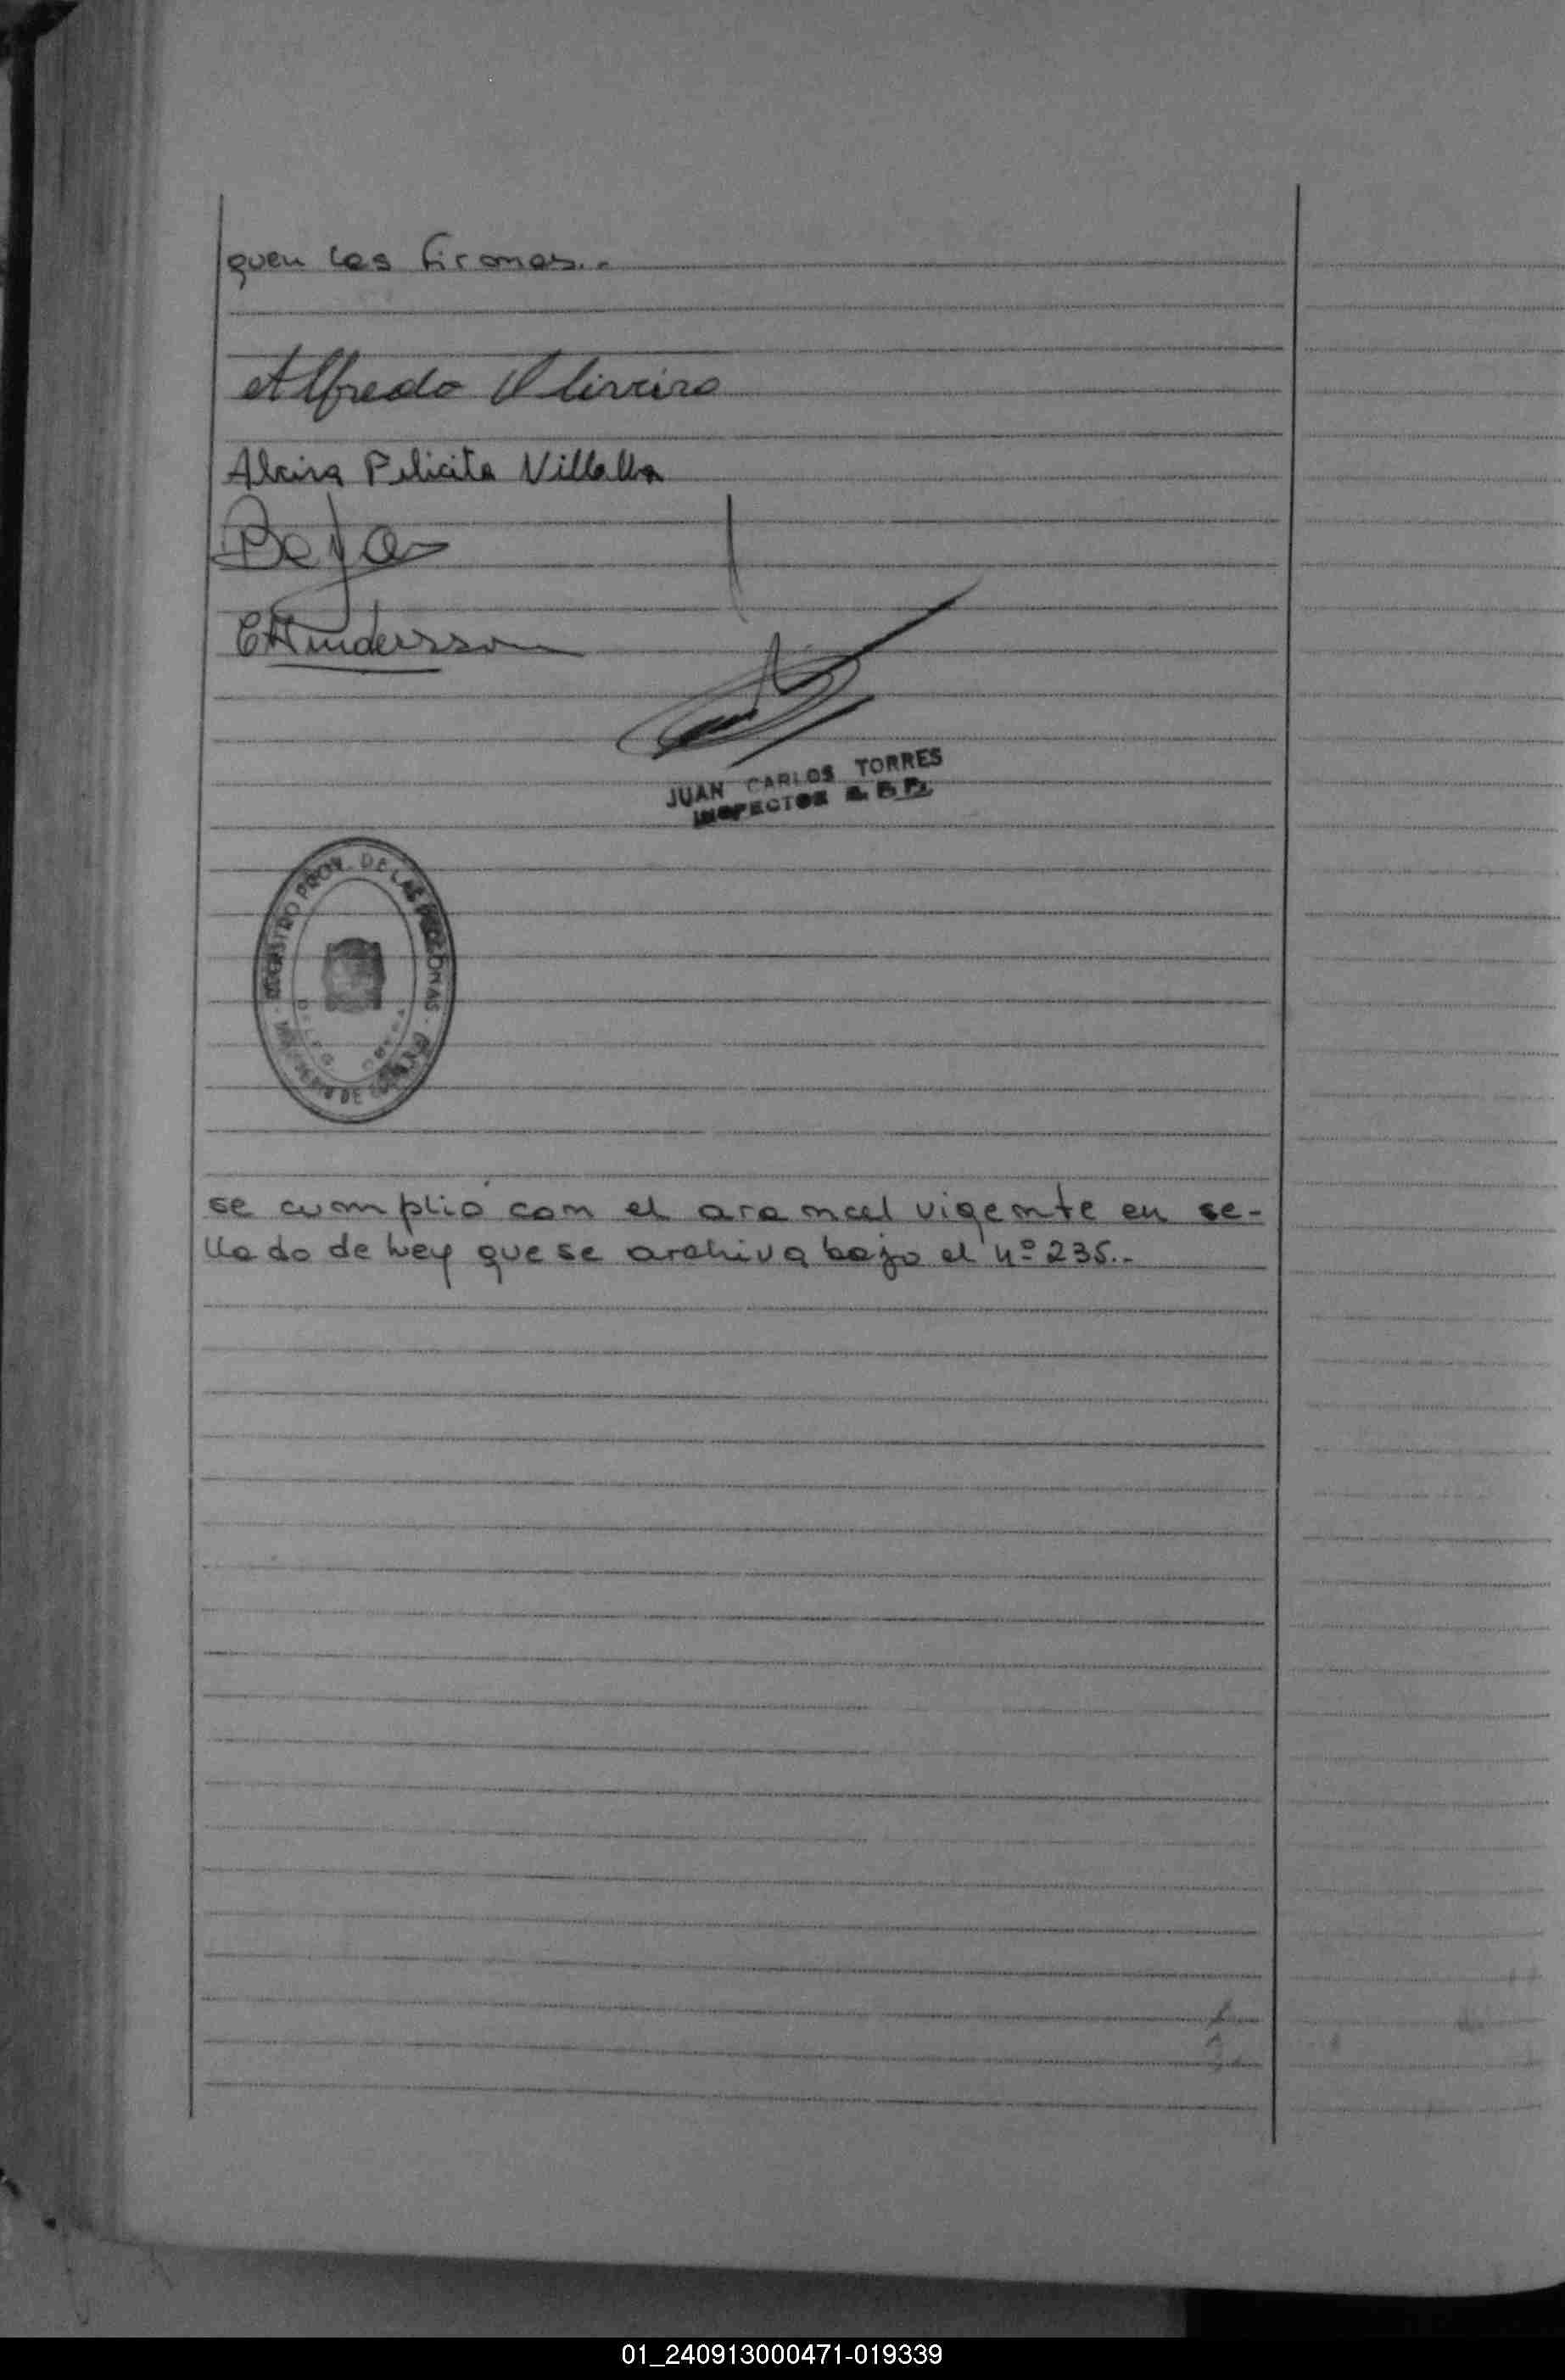 quen las firmas..
Alfredo Oliveira
Alcira Felicita Villalba
JUAN CARLOS TORRES
INSPECTOR R. P. P.
REGISTRO PROV. DE LAS PERSONAS
MINISTERIO DE GOBIERNO
DELEG.
se cumplió con el arancel vigente en se-
llado de Ley que se archiva bajo el nº 235.-
01_240913000471-019339